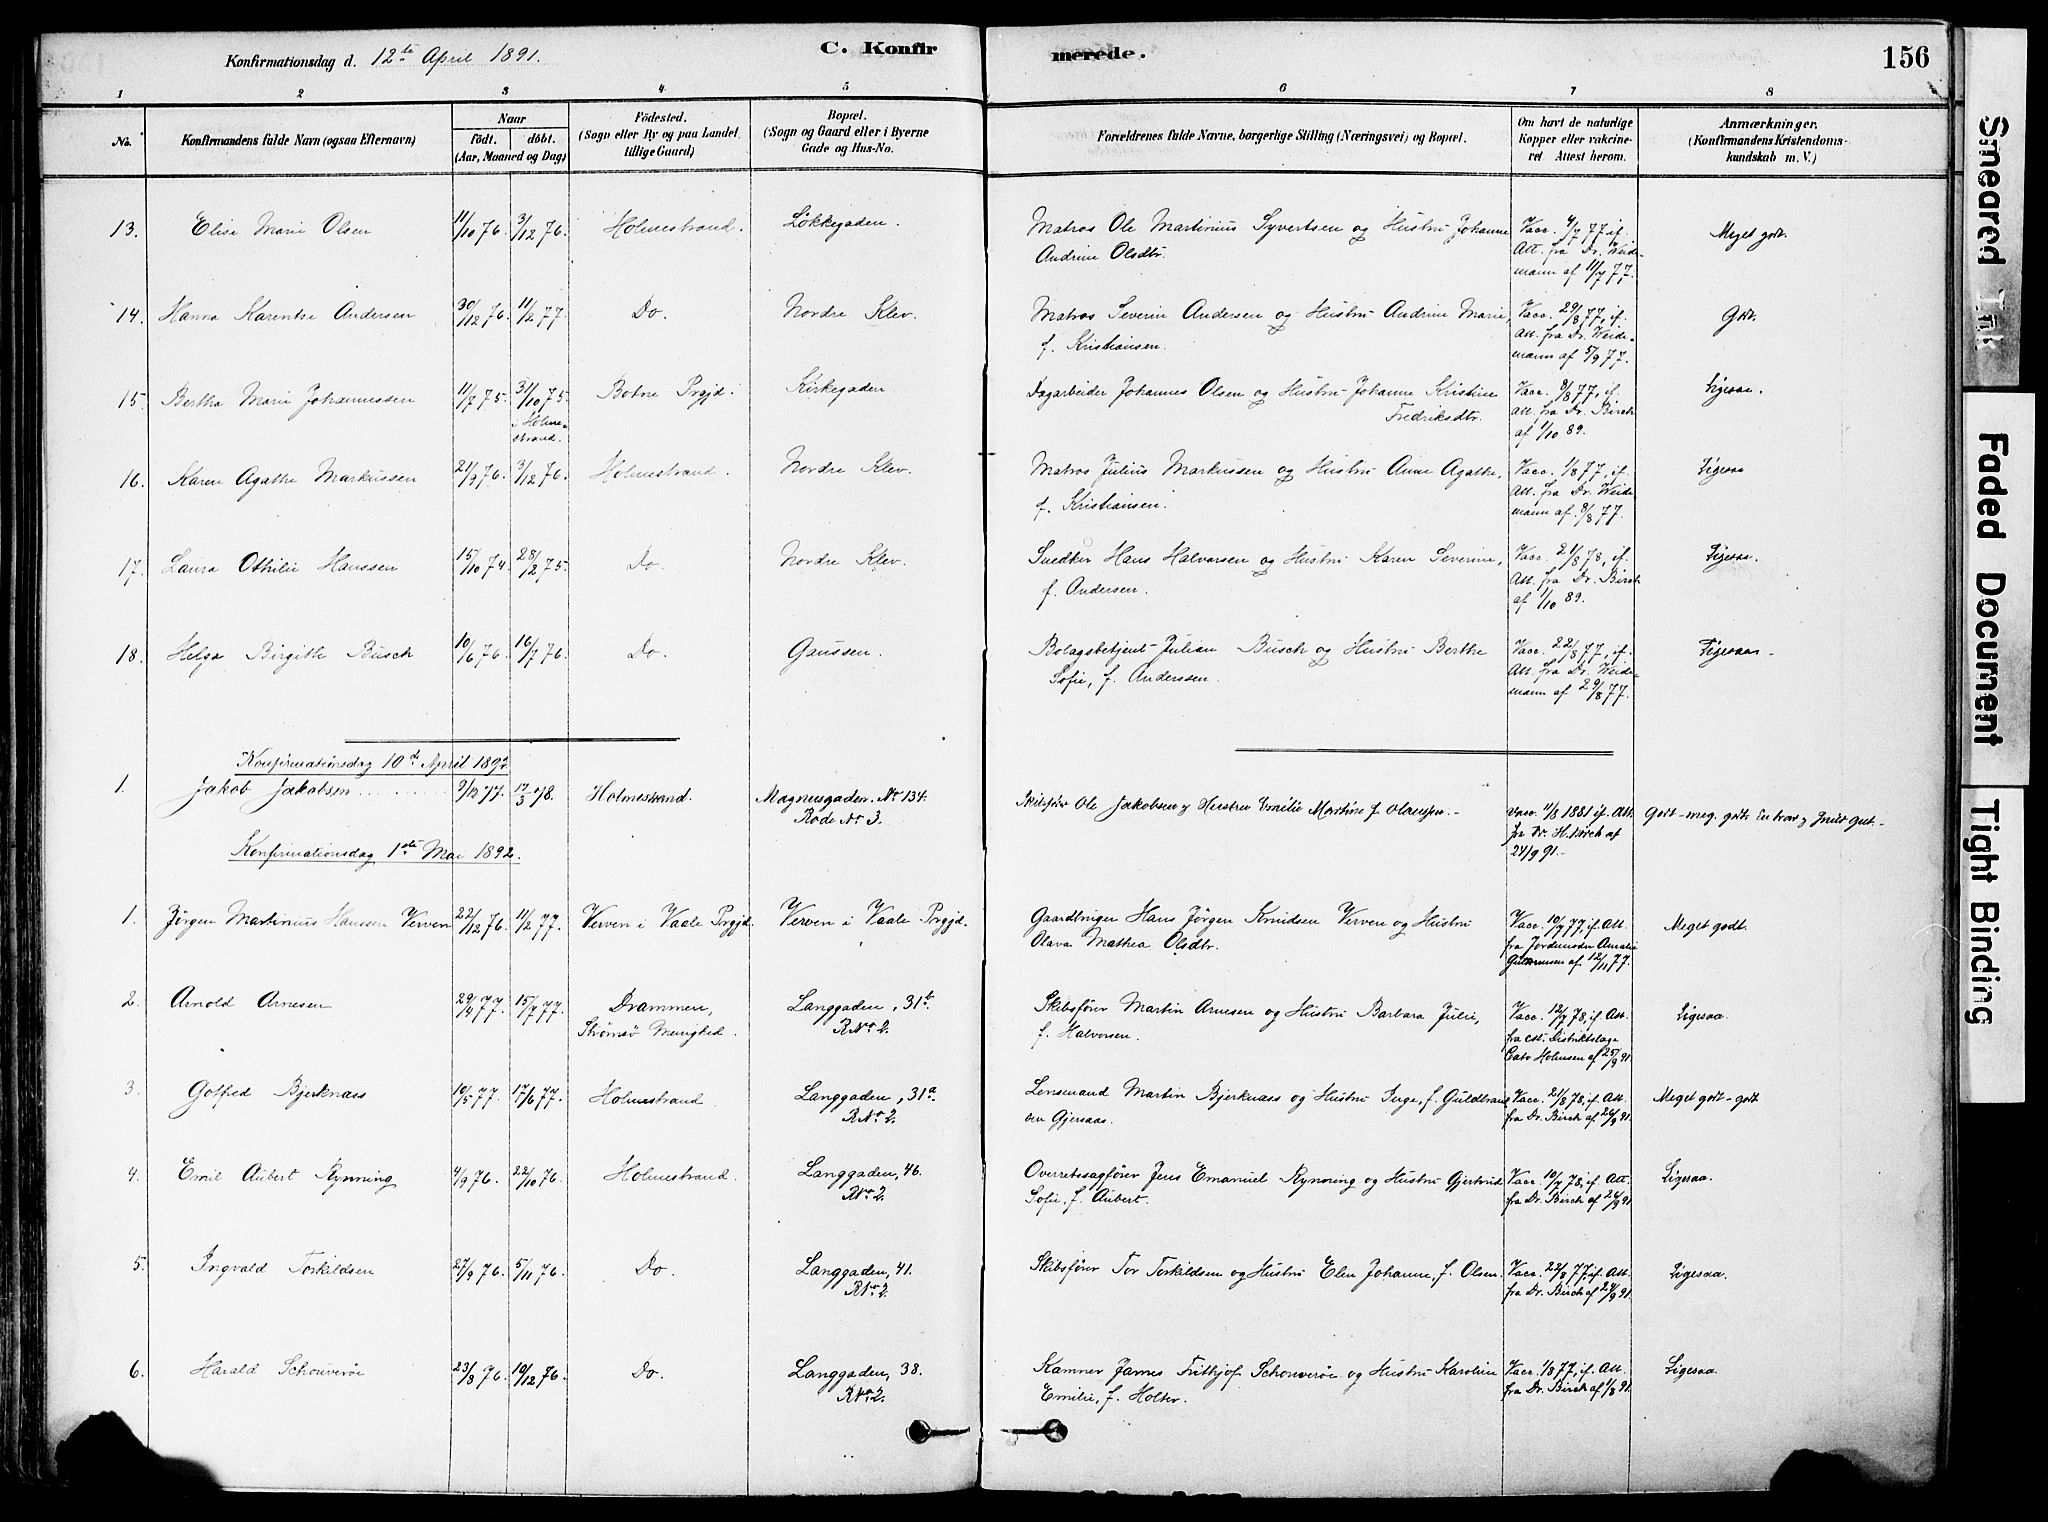 Konfirmationsdag d. 12te April 1891.
C. Konfirmerede.
156
1 2 3 4 5 6 7 8
No.
Konfirmandens fulde Navn (ogsaa Efternavn)
Naar
födt. döbt.
(Aar, Maaned og Dag)
Födested.
(Sogn eller By og paa Landet tillige Gaard)
Bopæl.
(Sogn og Gaard eller i Byerne Gade og Hus-No.
Forældrenes fulde Navne, borgerlige Stilling (Næringsvei) og Bopæl.
Om havt de naturlige Kopper eller vakcineret Attest herom.
Anmærkninger.
(Konfirmandens Kristendomskundskab m. V.)
13. Elise Marie Olsen 11/10 76. 3/12 76. Holmestrand. Løkkegaden. Matros Ole Martinius Syvertsen og Hustru Johanne Vacc. 4/7 77 if.
Andrine Olsdtr. Att. fra Dr. Weidemann af 11/7 77. Meget godt.
14. Hanna Karentse Andersen 30/12 76. 11/2 77. Do. Nordre Klev. Matros Severin Andersen og Hustru Andrine Marie, Vacc. 29/8 77, if.
f. Kristiansen. Att. fra Dr. Weidemann af 5/9 77. Godt.
15. Bertha Marie Johannessen 11/7 75. 31/10 75. i Holmestrand. Botne Prgjd. Kirkegaden. Dagarbeider Johannes Olsen og Hustru Johanne Kristine
Fredriksdtr. Vacc. 8/8 77, if. Att. fra Dr. Birch af 1/10 89. Ligesaa.
16. Karen Agathe Markussen 21/9 76. 3/12 76. Holmestrand. Nordre Klev. Matros Julius Markussen og Hustru Anne Agathe,
f. Kristiansen. Vacc. 1/8 77, if. Att. fra Dr. Weidemann af 8/8 77. Ligesaa
17. Laura Othilie Hanssen 15/10 74. 28/2 75. Do. Nordre Klev. Snedker Hans Halvorsen og Hustru Karen Severine,
f. Andersen. Vacc. 21/8 78, if. Att. fra Dr. Birch af 1/10 89. Ligesaa.
18. Helga Birgitte Busch 10/6 76. 16/7 76. Do. Gaussen. Bolagsbetjent Julian Busch og Hustru Berthe
Sofie, f. Anderssen. Vacc. 22/8 77, if. Att. fra Dr. Weidemann af 29/8 77. Ligesaa.
Konfirmationsdag 10de April 1892
1. Jakob Jakobsen 9/12 77. 17/3 78. Holmestrand. Magnusgaden. No 134.
Rode No 3. Skibsfører Ole Jakobsen og Hustru Emilie Martine f. Vacc 11/8 1881 if. Att.
fra Dr. H. Birch af 24/9 91. Godt - meg. godt.
Konfirmationsdag 1ste Mai 1892.
1. Jørgen Martinius Hanssen Verven 22/12 76. 11/2 77. Verven i Vaale Prgjd. Verven i Vaale Prgjd. Gaardbruger Hans Jørgen Knudsen Verven og Hustru
Olava Mathea Olsdtr. Vacc. 10/7 77, if. Att. fra Jordemoder Amalie Gulbransen af 12/11 77. Meget godt.
2. Arnold Arnesen 29/4 77. 15/7 77. Drammen, Strømsø Menighed. Langgaden, 31b.
R No 2. Skibsfører Martin Arnesen og Hustru Barbara Julie,
f. Halvorsen. Vacc. 12/7 78, if. Att. fra cst. Distriktslæge Cato Holmsen af 25/9 91. Ligesaa.
3. Gotfred Bjerknæss 10/5 77. 17/6 77. Holmestrand. Langgaden, 31a.
R No 2. Lensmand Martin Bjerknæss og Hustru Inge, f. Guldbransen Gjersaas. Vacc. 21/8 78, if. Att. fra Dr. Birch af 24/9 91. Meget godt - godt
4. Emil Aubert Rynning 4/9 76. 22/10 76. Holmestrand. Langgaden, 46.
R No 2. Overretssagfører Jens Emanuel Rynning og Hustru Gjertrud
Sofie, f. Aubert. Vacc. 10/7 78, if. Att. fra Dr. Birch af 24/9 91. Ligesaa.
5. Ingvald Torkildsen 27/9 76. 5/11 76. Do. Langgaden, 41.
R No 2. Skibsfører Tor Torkildsen og Hustru Elen Johanne, f. Olsen. Vacc. 22/8 77, if. Att. fra Dr. Birch af 24/9 91. Ligesaa.
6. Harald Schouverøe 23/8 76. 10/12 76. Do. Langgaden, 38.
R No 2. Kamner James Frithjof Schouverøe og Hustru Karoline
Emilie, f. Holter. Vacc. 1/8 77, if. Att. fra Dr. Birch af 1/8 91. Ligesaa.
Smeared Ink
Faded Document
Tight Binding